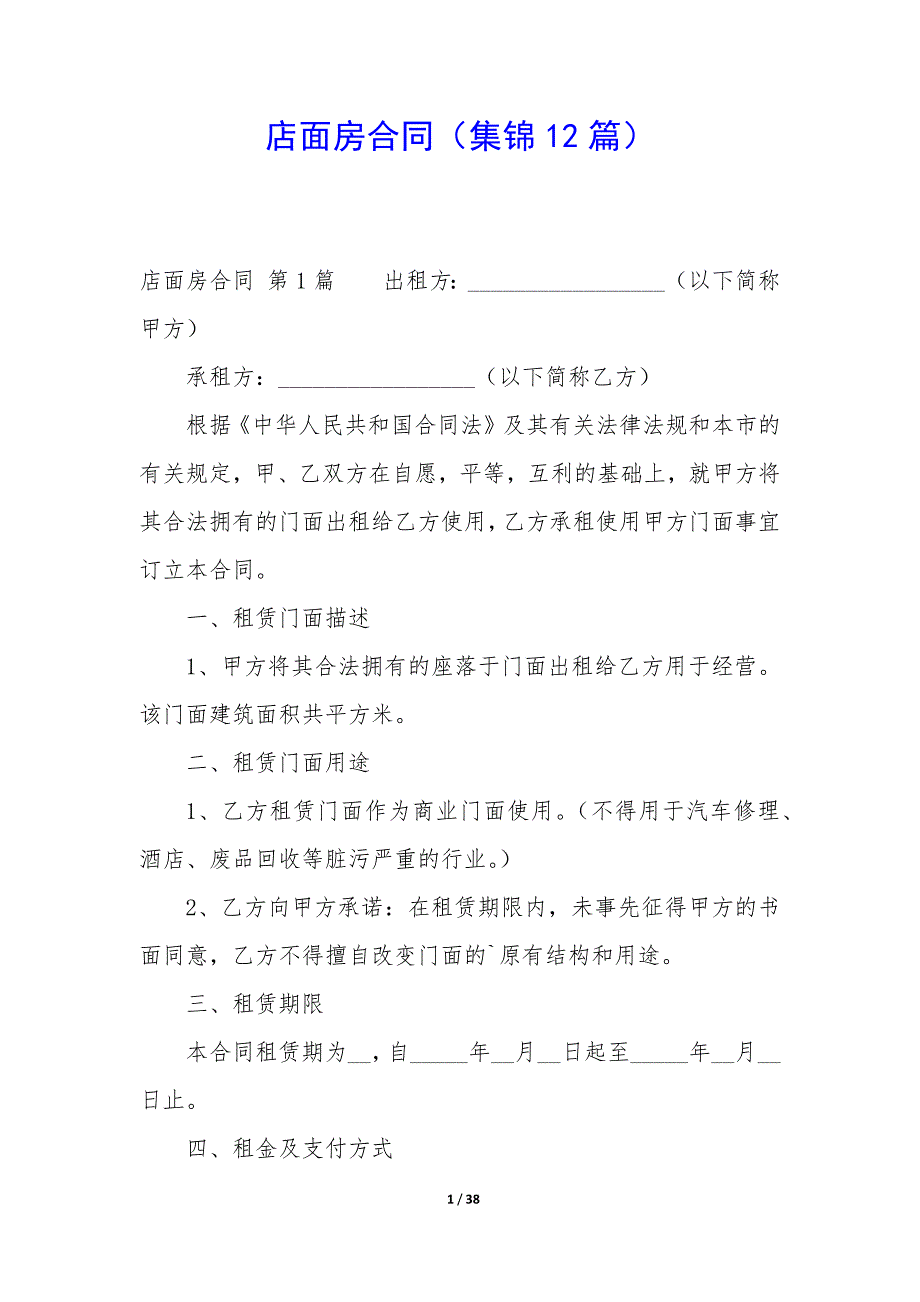 店面房合同（集锦 12 篇）
店面房合同 第 1 篇　　出租方：_________________（以下简称
甲方）
承租方：_________________（以下简称乙方）
根据《中华人民共和国合同法》及其有关法律法规和本市的
有关规定，甲、乙双方在自愿，平等，互利的基础上，就甲方将
其合法拥有的门面出租给乙方使用，乙方承租使用甲方门面事宜
订立本合同。
一、租赁门面描述
1、甲方将其合法拥有的座落于门面出租给乙方用于经营。
该门面建筑面积共平方米。
二、租赁门面用途
1、乙方租赁门面作为商业门面使用。（不得用于汽车修理、
酒店、废品回收等脏污严重的行业。）
2、乙方向甲方承诺：在租赁期限内，未事先征得甲方的书
面同意，乙方不得擅自改变门面的`原有结构和用途。
三、租赁期限
本合同租赁期为__，自_____年__月__日起至_____年__月__
日止。
四、租金及支付方式
1 / 38